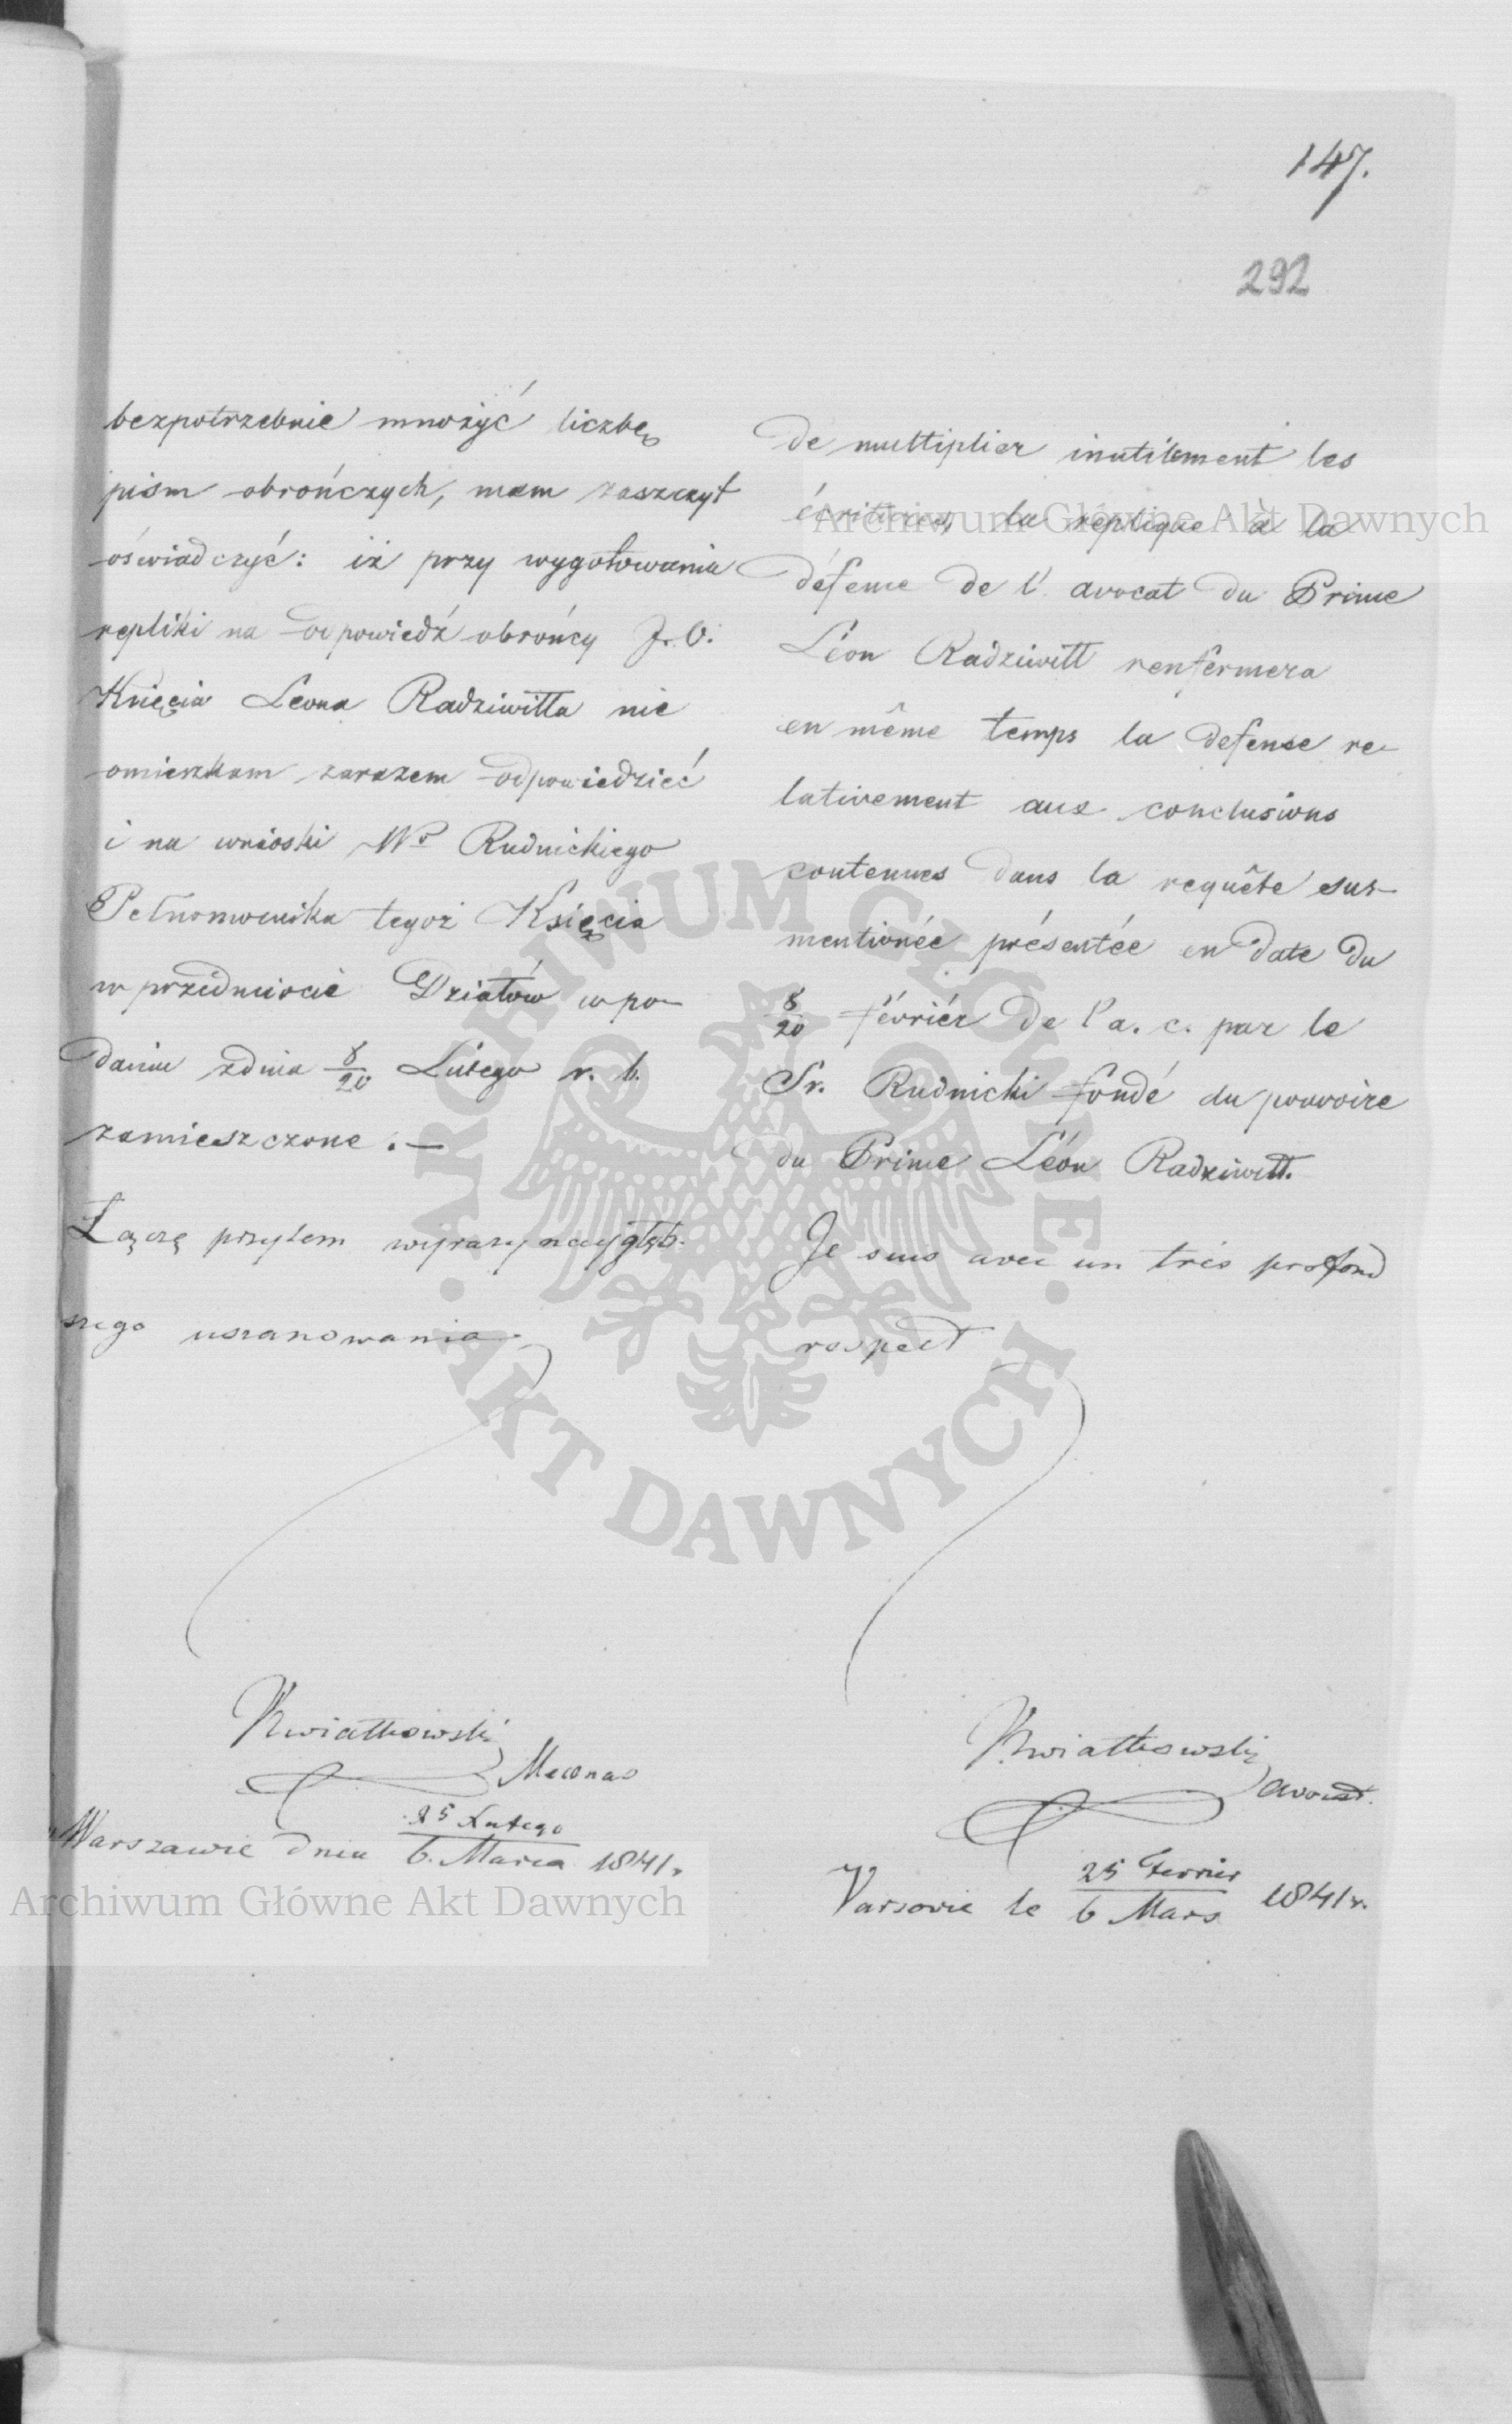 147.
292
bezpotrzebnie mnożyć liczbę
pism obrończych, mam zaszczyt
oświadczyć: iż przy wygotowaniu
repliki na odpowiedź obrońcy J. O.
Knięcia Leona Radziwiłła nie
omieszkam zarazem odpowiedzieć
i na wnioski Wo Rudnickiego
Pełnomocnika tegoż Księcia
w przedmiocie Działów w po-
daniu z dnia 8/20 Lutego r. b.
zamieszczone. —
Łączę przytem wyrazy naygłęb-
szego uszanowania.
Kwiatkowski
Mecenas
Warszawie dnia 25 Lutego / 6. Marca 1841 r.
de multiplier inutilement les
écritures, la replique à la
défense de l'avocat du Prince
Léon Radziwiłł renfermera
en même temps la defense re-
lativement aux conclusions
contenues dans la requête sus-
mentionée présentée en date du
8/20 févriér de l'a. c. par le
Sr. Rudnicki fondé du pouvoire
du Prince Léon Radziwiłł.
Je suis avec un très profond
respect
Kwiatkowski
avocat.
Varsovie le 25 Fevrier / 6 Mars 1841 r.
Archiwum Główne Akt Dawnych
Archiwum Główne Akt Dawnych
ARCHIWUM GŁÓWNE
AKT DAWNYCH